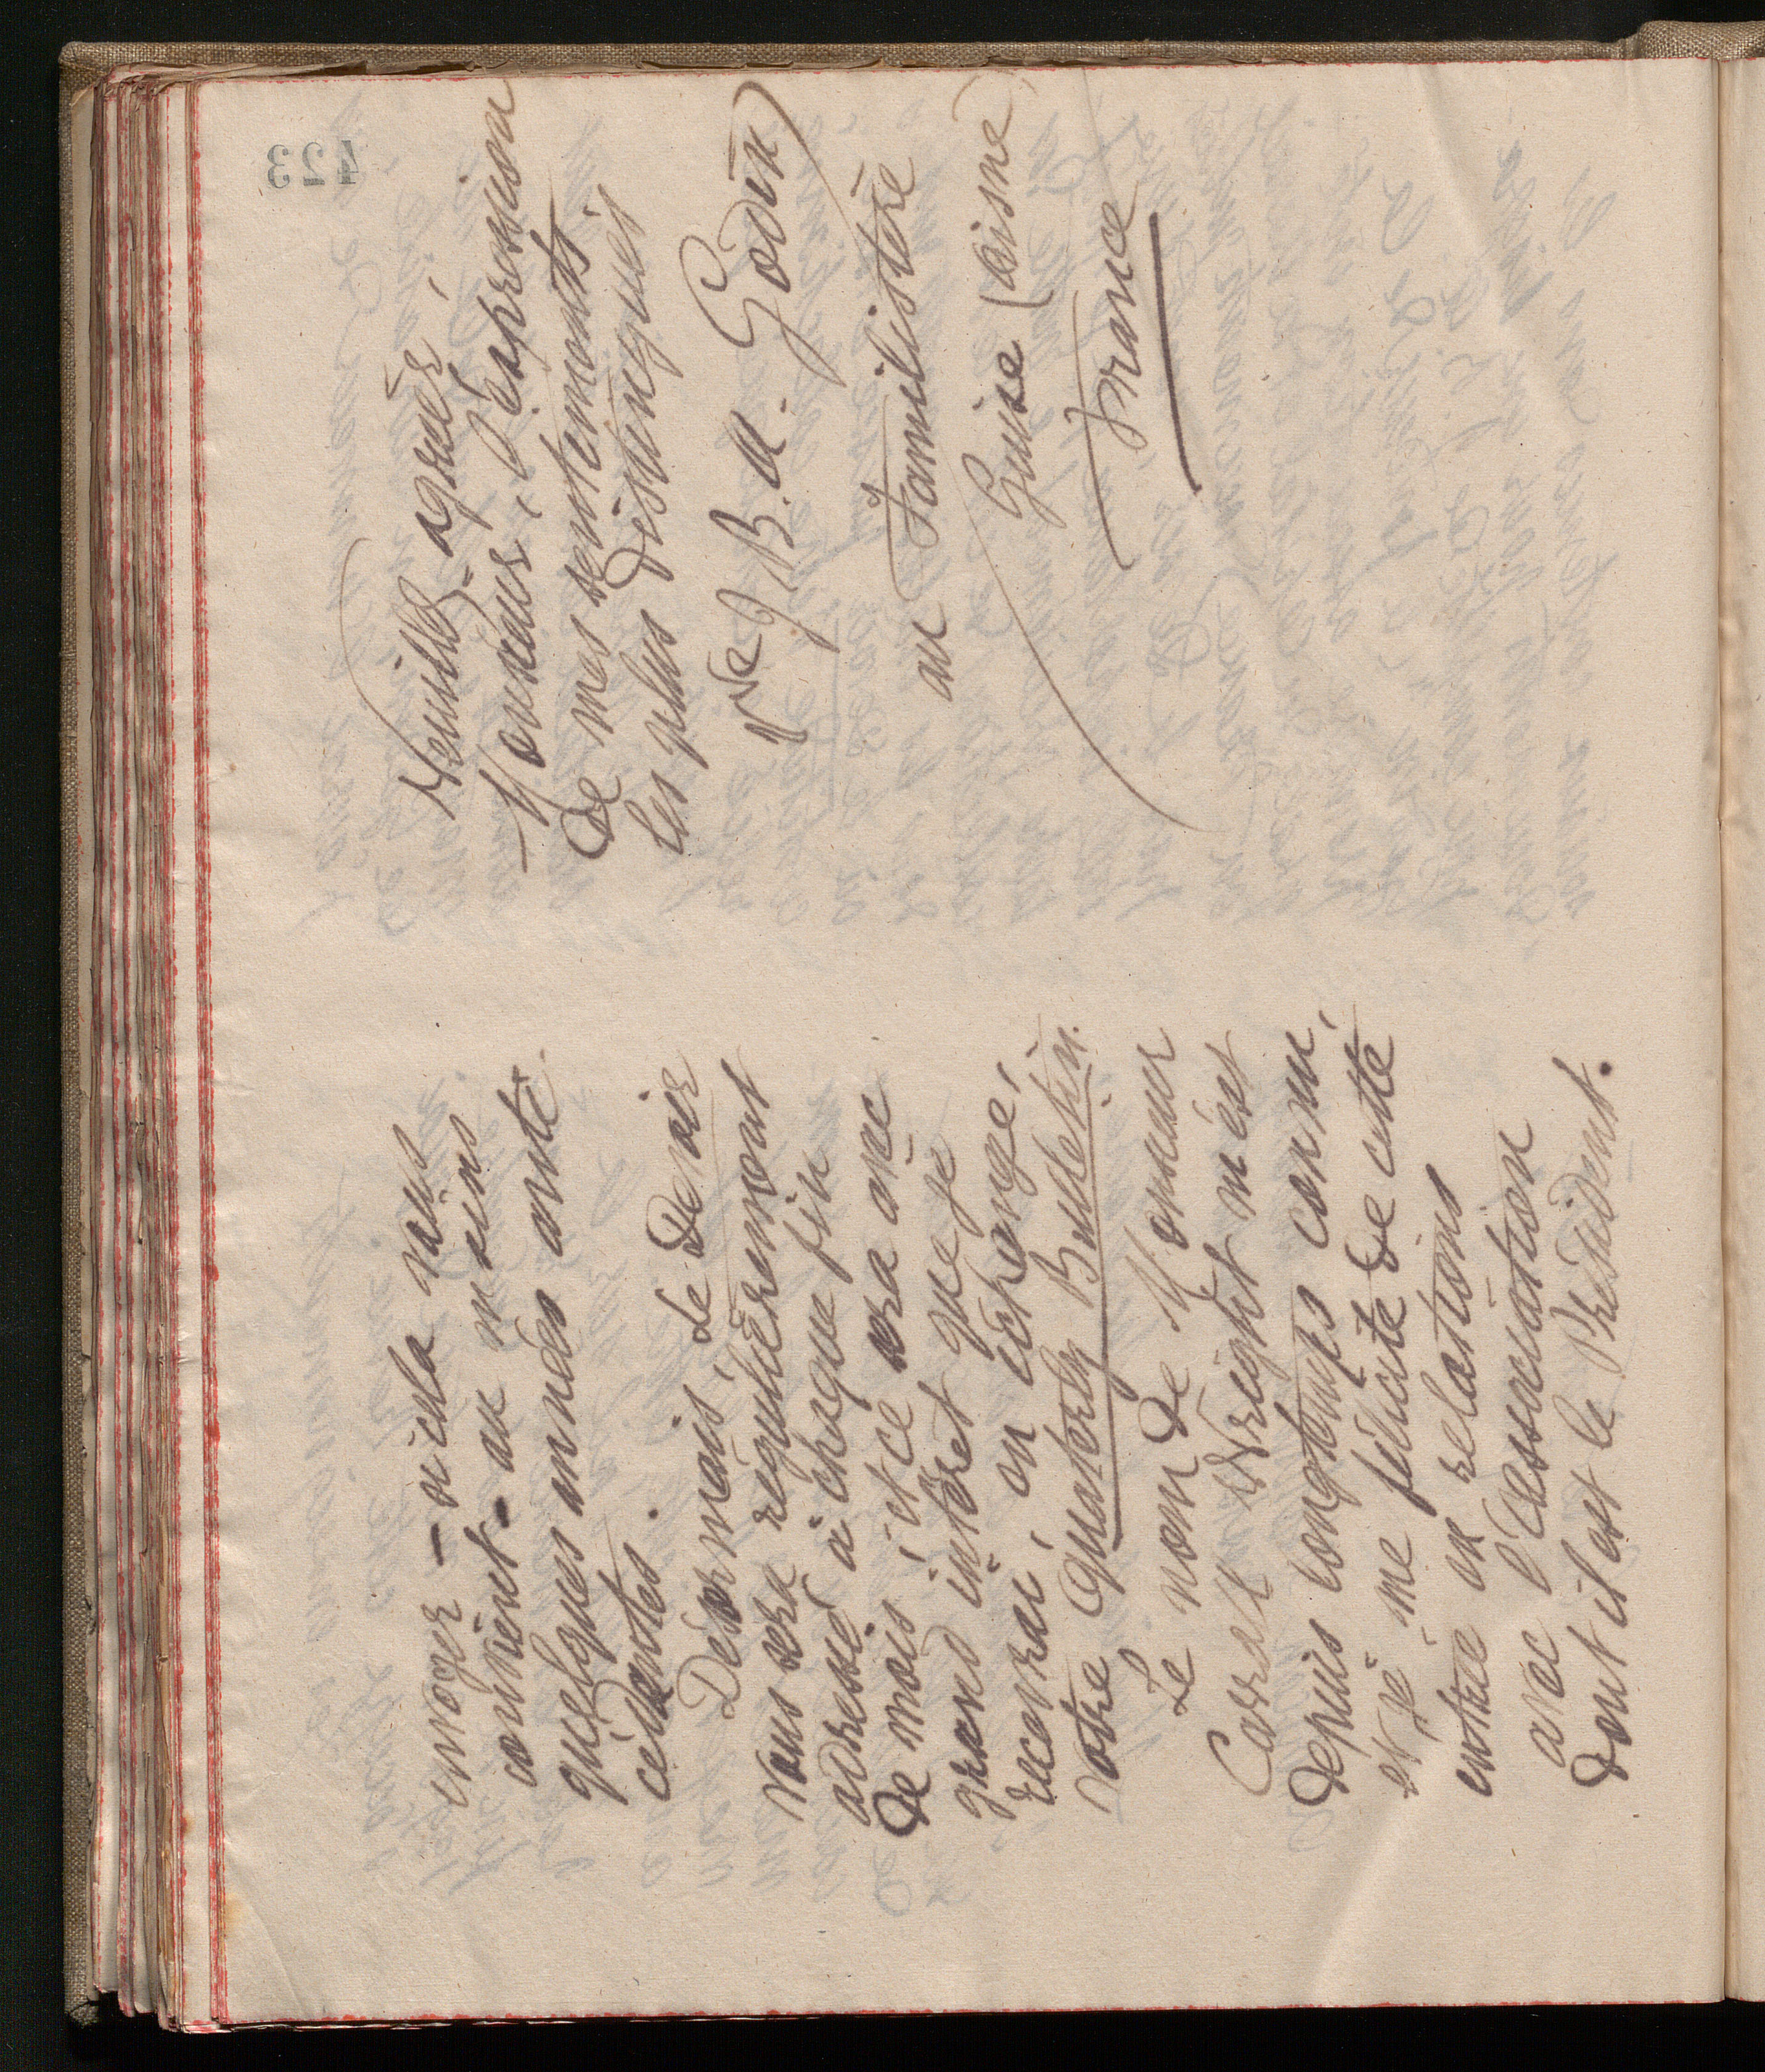 envoyer – si cela vous
convient – au moins
quelques années anté-
cédentes.
Désormais, Le Devoir
vous sera régulièrement
adressé à chaque fin
de mois, et ce sera avec
grand intérêt que je
recevrai, en échange,
votre Quaterly Bulletin.
Le nom de Monsieur
Carroll Wright m'est
depuis longtemps connu,
et je me félicite de cette
entrée en relations
avec l'Association
dont il est le Président.
Veuillez agréer,
Monsieur, l'expression
de mes sentiments
les plus distingués
Vve J. B. A. Godin
au Familistère
Guise (Aisne)
France
423